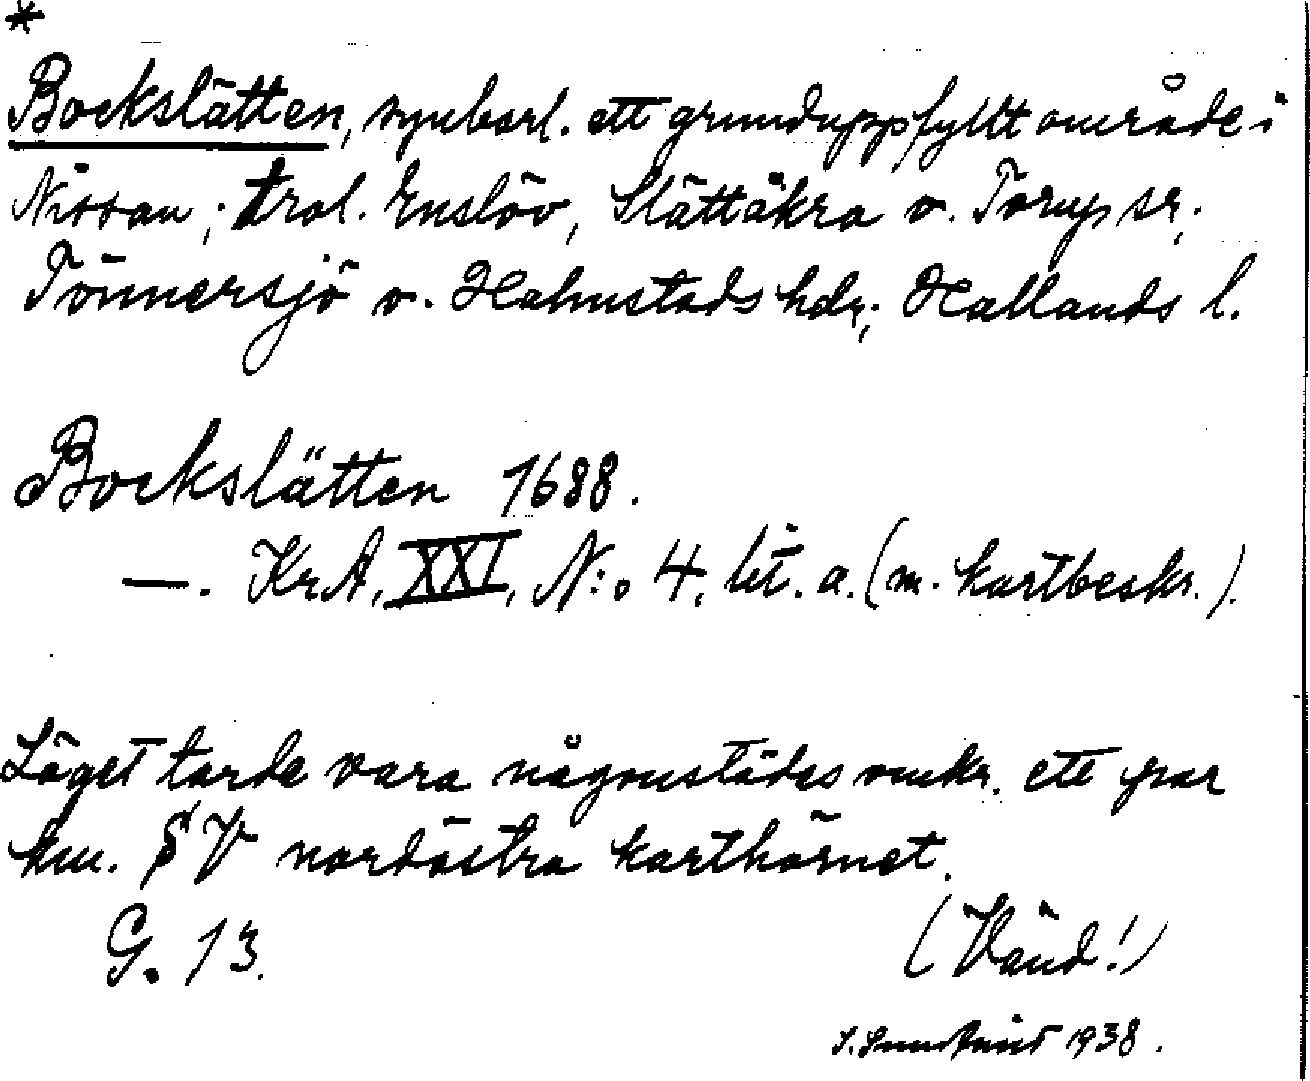 *
Bockslätten, synbarl. ett grunduppfyllt område i
Nissan; trol. Enslöv, Slättåkra o. Torup sr,
Tönnersjö o. Halmstads hdr; Hallands l.
Bockslätten 1688.
—. KrA, XXI, N:o 4, lit. a. (m. kartbeskr.).
Läget torde vara någonstädes omkr. ett par
km. SV nordöstra karthörnet.
G. 13.
(Vänd!)
1938.